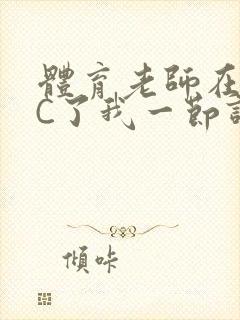 體育老師在
C了我一節
傾咔